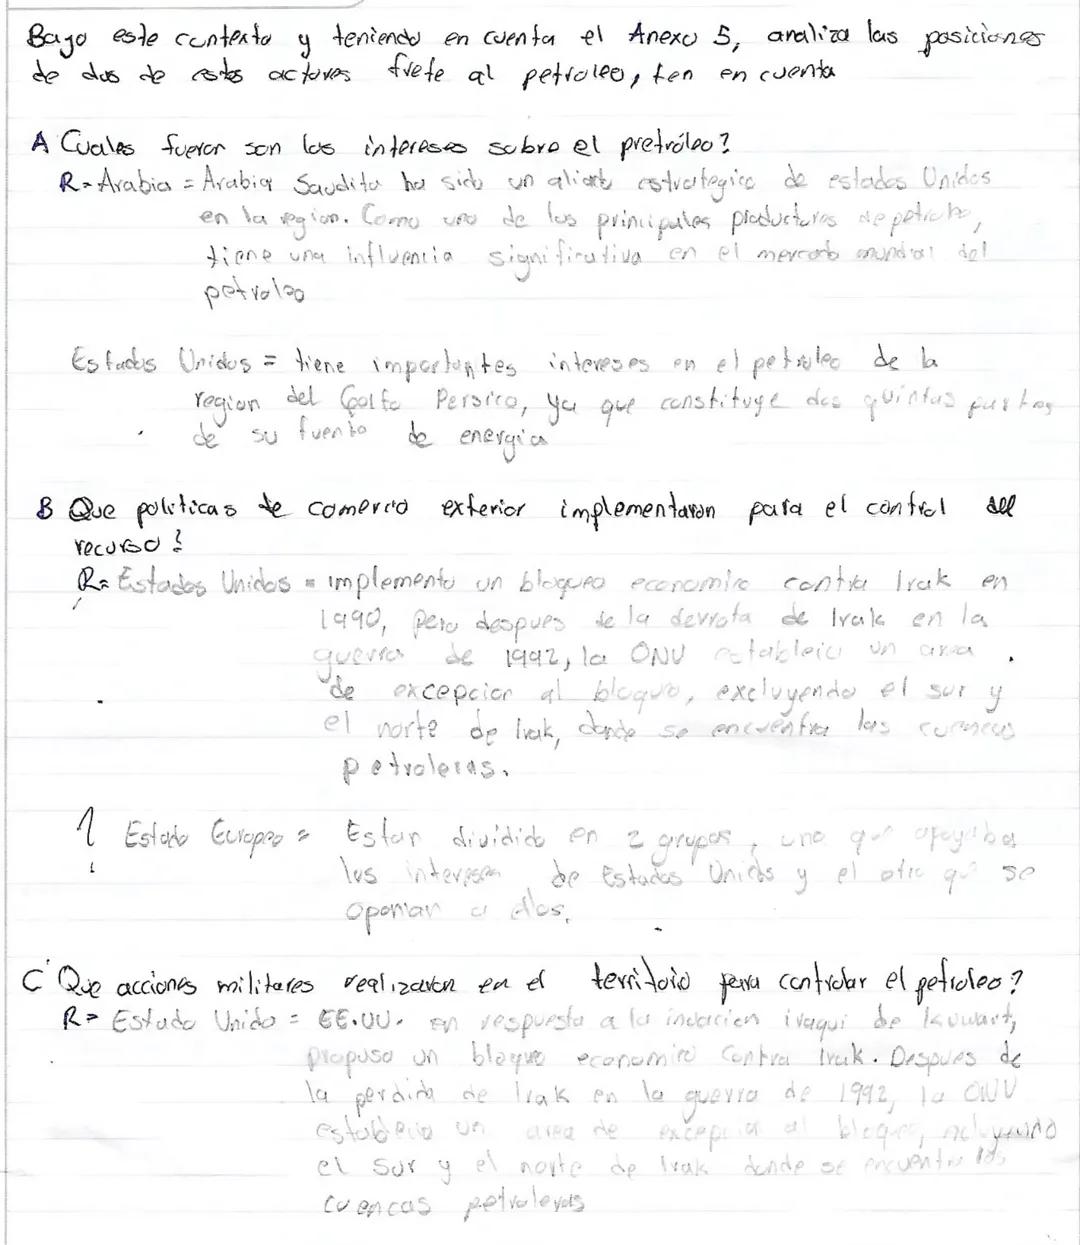 Bajo este contexto y teniendo en cuenta el Anexo 5, analiza las posiciones
de dos de estos actores frete al petroleo, ten en cuenta
A Cuales fueron son los intereses sobre el pretróleo?
R= Arabia = Arabia Saudita ha sido un aliado estrategico de estados Unidos
en la region. Como uno de los principales productores de petroleo,
tiene una influencia significativa en el mercado mundial del
petroleo
Estados Unidos = tiene importantes intereses en el petroleo de la
region del Golfo Persico, ya que constituye dos quintas partes
de su fuente de energia
B Que politicas de comercio exterior implementaron para el control del
recurso?
R= Estados Unidos = implemento un bloqueo economico contra Irak en
1990, pero despues de la derrota de Irak en la
guerra de 1992, la ONU establecio un area
de excepcion al bloqueo, excluyendo el sur y
el norte de Irak, donde se encuentra las cuencas
petroleras.
? Estado Europeo = Estan dividido en 2 grupos, uno que apoyaba
los intereses de Estados Unidos y el otro que se
oponian a ellos.
C Que acciones militares realizaron en el territoio para controlar el petroleo?
R= Estado Unido = EE.UU. en respuesta a la invacion iraqui de Kuwart,
propuso un bloque economico contra Irak. Despues de
la perdida de Irak en la guerra de 1992, la ONU
establecio un area de excepcion al bloqueo,
el sur y el norte de Irak donde se encuentra las
cuencas petroleras